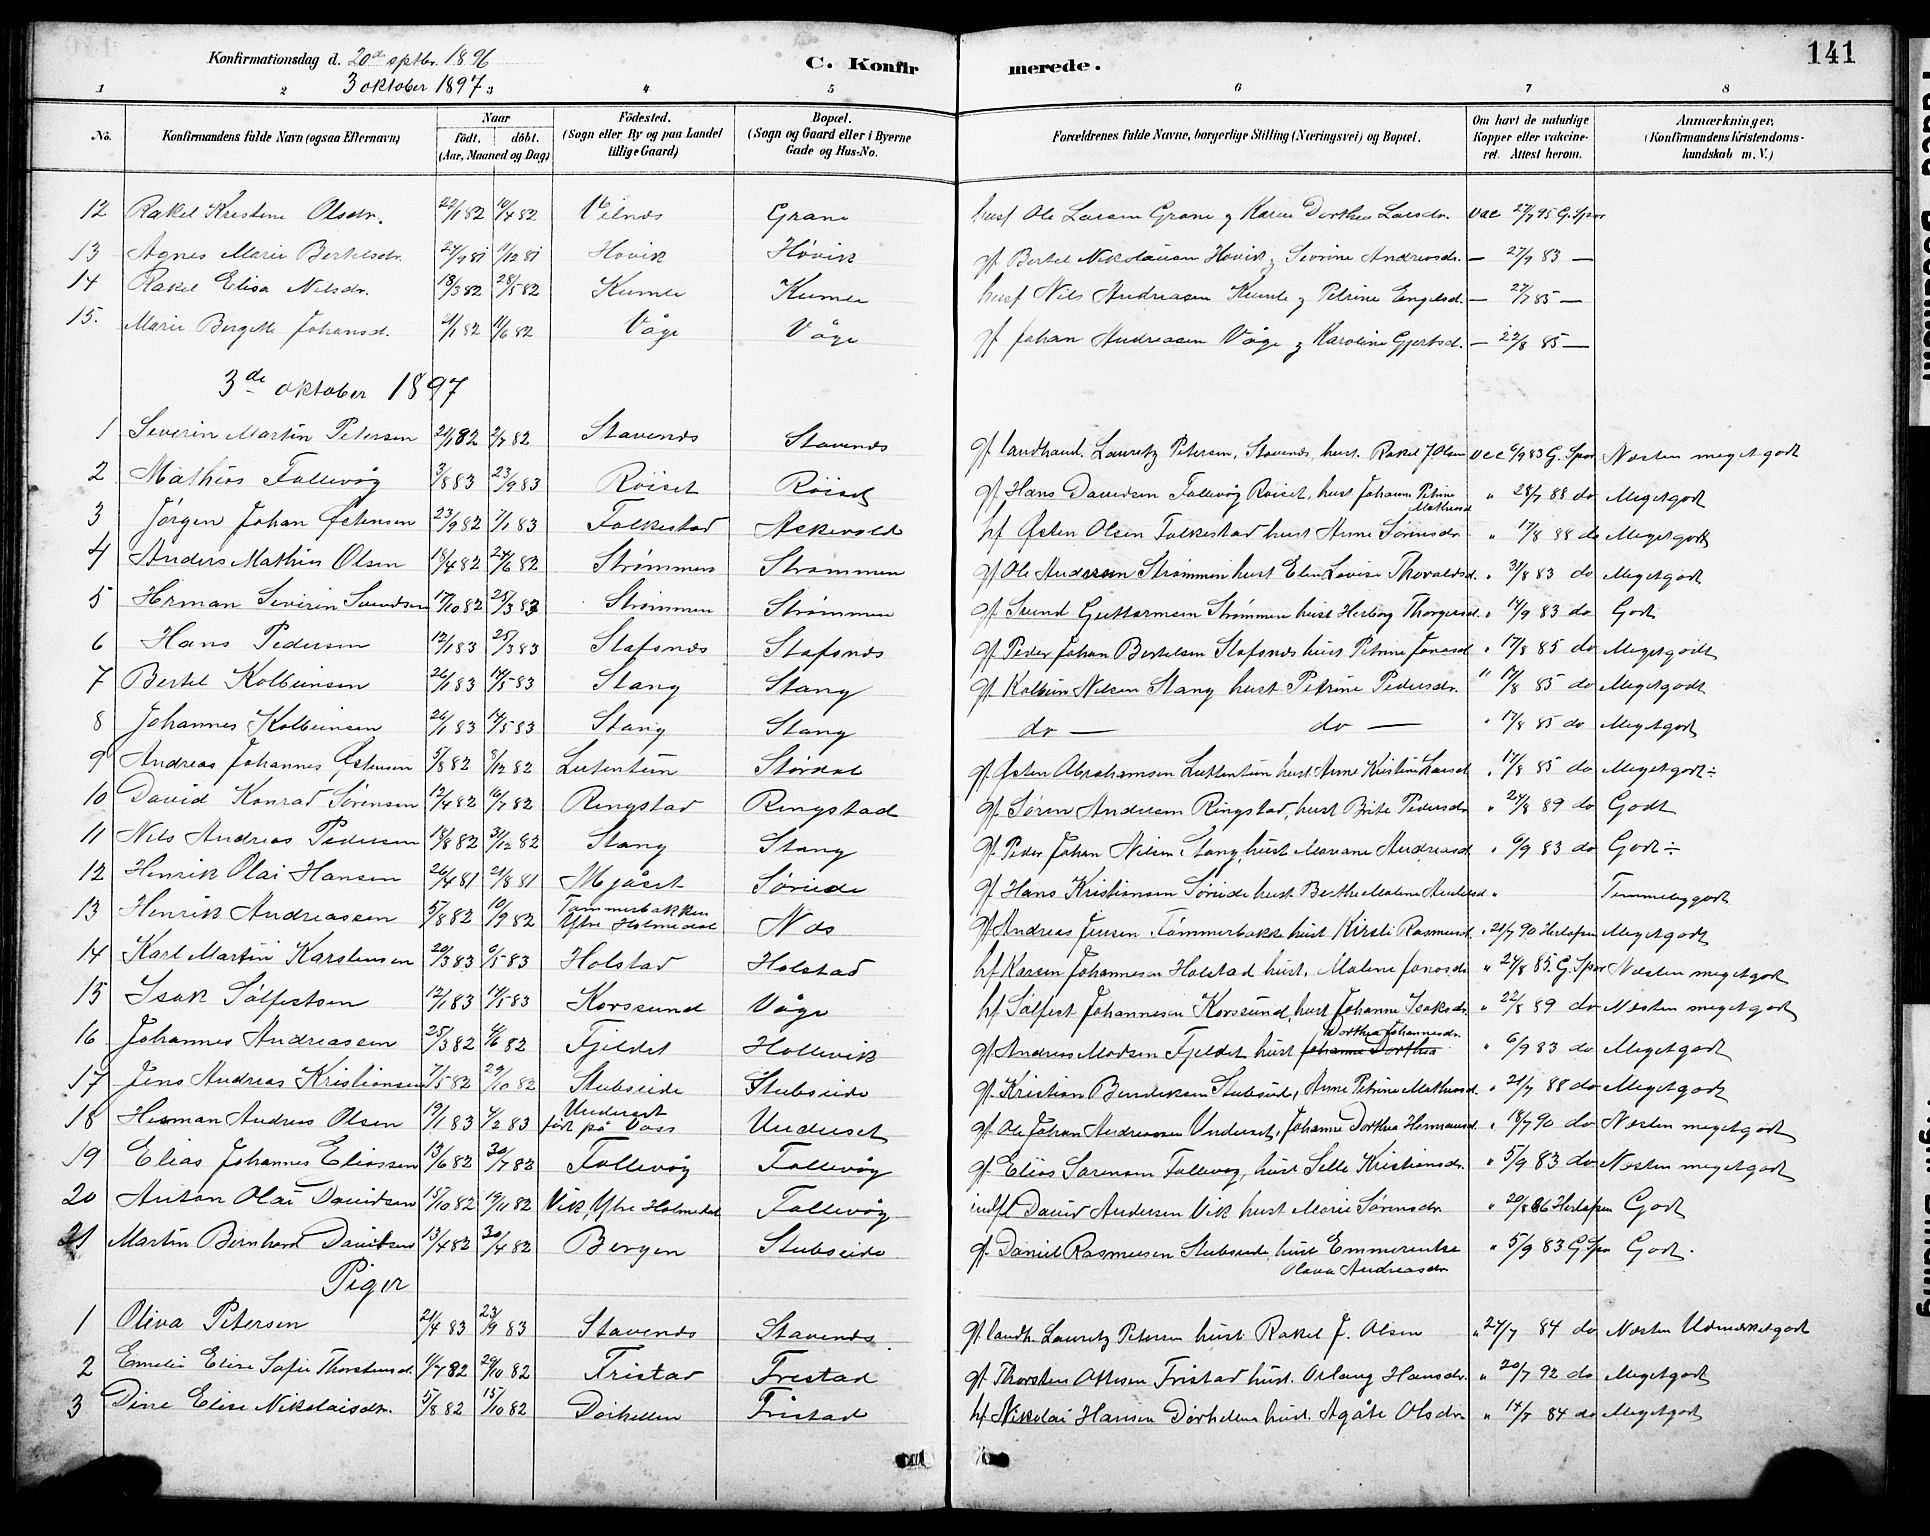 Konfirmationsdag d. 20de sptbr. 1896
3 oktober 1897
C. Konfirmerede.
141
1 2 3 4 5 6 7 8
No. Konfirmandens fulde Navn (ogsaa Efternavn) Naar født. døbt. (Aar, Maaned og Dag) Fødested. (Sogn eller By og paa Landet tillige Gaard) Bopæl. (Sogn og Gaard eller i Byerne Gade og Hus-No. Forældrenes fulde Navne, borgerlige Stilling (Næringsvei) og Bopæl. Om havt de naturlige Kopper eller vaccineret. Attest herom. Anmærkninger, (Konfirmandens Kristendomskundskab m. V.)
12 Rakel Kristine Olsdr. 22/1 82 10/4 82 Vilnes Grane husf Ole Larsen Grane g Karen Dorthea Larsdr. vac 27/7 95 G. Spor
13 Agnes Marie Bertelsdr. 24/9 81 11/12 81 Hovik Høvik gf Bertel Nikolaisen Høvik g Severine Andreasdr. — 27/9 83 —
14 Rakel Elisa Nilsdr. 18/3 82 28/5 82 Kumle Kumle husf Nils Andreasen Kumle g Petrine Engelsd. — 27/7 85 —
15. Marie Bergitte Johansd. 21/1 82 11/6 82 Våge Våge gf Johan Andreasen Våge g Karoline Gjertsd. — 22/8 85 —
3de oktober 1897
1 Severin Martin Petersen 21/1 82 2/7 82 Stavenes Stavenes gf landhand. Lauretz Petersen, Stavenes, hust. Rakel J. Olsen vac 6/9 83 G. Spor Næsten meget godt
2 Mathias Follevåg 3/8 83 23/9 83 Röiset Röiset gf Hans Davidsen Follevåg Röiset, hust Johanne Petrine Mathiasd " 28/7 88 do Meget godt
3 Jørgen Johan Østensen 23/9 82 7/1 83 Folkestad Askevold hf Østen Olsen Folkestad hust Anne Sørensdr. " 17/8 88 do Meget godt
4 Anders Mathias Olsen 18/4 82 24/6 82 Strømmen Strømmen gf Ole Andersen Strømmen hust Elen Lovise Thorvaldsd. " 31/8 83 do Meget godt
5 Herman Severin Svendsen 17/10 82 25/3 83 Strømmen Strømmen gf Svend Guttormsen Strømmen hust Herborg Thorgersd. " 14/9 83 do Godt
6 Hans Pedersen 12/1 83 25/3 83 Stafsnes Stafsnes gf Peder Johan Bertelsen Stafsnes hust Petrine Jonasd " 17/8 85 do Meget godt
7 Bertel Kolbeinsen 26/1 83 14/5 83 Stang Stang gf Kolbein Nilsen Stang hust Petrine Pedersdr. " 17/8 85 do Meget godt
8 Johannes Kolbeinsen 26/1 83 14/5 83 Stang Stang do — do — " 17/8 85 do Meget godt
9 Andreas Johannes Østensen 5/8 82 3/12 82 Lutentun Stordal gf Østen Abrahamsen Luttentun hust Anne Kristine Larsd " 17/8 85 do Meget godt ÷
10 David Konrad Sørensen 12/4 82 16/7 82 Ringstad Ringstad gf Søren Andersen Ringstad, hust Brite Pedersdr " 24/8 89 do Godt
11 Nils Andreas Pedersen 18/8 82 31/12 82 Stang Stang gf Peder Johan Nilsen Stang, hust Mariane Andreasd. " 6/9 83 do Godt ÷
12 Henrik Olai Hansen 26/4 81 21/8 81 Mjåset Søreide gf Hans Kristiansen Søreide hust Berthe Malene Andersd " Temmelig godt
13 Henrik Andreassen 5/8 82 10/9 82 Tømmerbakken Ytre Holmedal Nes gf Andreas Jensen Tømmerbakke hust Kirsti Rasmusd. " 21/7 90 Herlofsen Meget godt
14 Karl Martin Karstensen 20/3 83 6/5 83 Holstad Holstad hf Karsen Johannesen Holstad hust. Malene Jonasdr " 24/8 85. G. Spor Næsten meget godt
15 Isak Sølfestsen 12/1 83 14/5 83 Korssund Våge hf Sølfest Johannesen Korssund, hust Johanne Isaksdr. " 22/8 89 do Næsten meget godt
16 Johannes Andreassen 25/3 82 4/6 82 Fjeldet Hollevik gf Andreas Madsen Fjeldet hust Johanne Dorthea Dorthea Johannesdr. " 6/9 83 do Meget godt
17 Jens Andreas Kristiansen 7/5 82 29/10 82 Stubseide Stubseide gf Kristian Bendiksen Stubseide, Anne Petrine Mathiasd. " 21/7 88 do Meget godt
18 Herman Andreas Olsen 19/1 83 4/2 83 Underset født på Voss Underset gf Ole Johan Andreassen Underset, Johanne Dorthea Hermansd. " 18/7 90 do Næsten meget godt
19 Elias Johannes Eliassen 13/6 82 30/7 82 Follevåg Follevåg gf Elias Sørensen Follevåg, hust Selle Kristiansdr. " 5/9 83 do Næsten meget godt
20 Anton Olai Davidsen 15/10 82 19/11 82 Vik, Ytre Holmedal Follevåg indft David Andersen Vik hust Marie Sørensdr " 20/8 86 Herlofsen Godt
21 Martin Bernhard Danielsen 13/4 82 30/4 82 Bergen Stubseide gf Daniel Rasmussen Stubseide, hust Emmerentse Olava Andreasdr " 5/9 83 G. Spor Godt.
Piger
1 Oliva Petersen 21/4 83 23/9 83 Stavenes Stavenes gf landh. Lauretz Petersen hust. Rakel J. Olsen " 24/7 84 do Næsten Udmærket godt
2 Emelie Elise Sofie Thorstensd. 1/7 82 29/10 82 Fristad Fristad gf Thorsten Ottesen Fristad hust. Orlaug Hansdr. " 20/7 92 do Meget godt
3 Dine Elise Nikolaisdr. 5/8 82 15/10 82 Dørhellen Fristad hf Nikolai Hansen Dørhellen hust. Agåte Olsdr " 14/7 84 do Meget godt